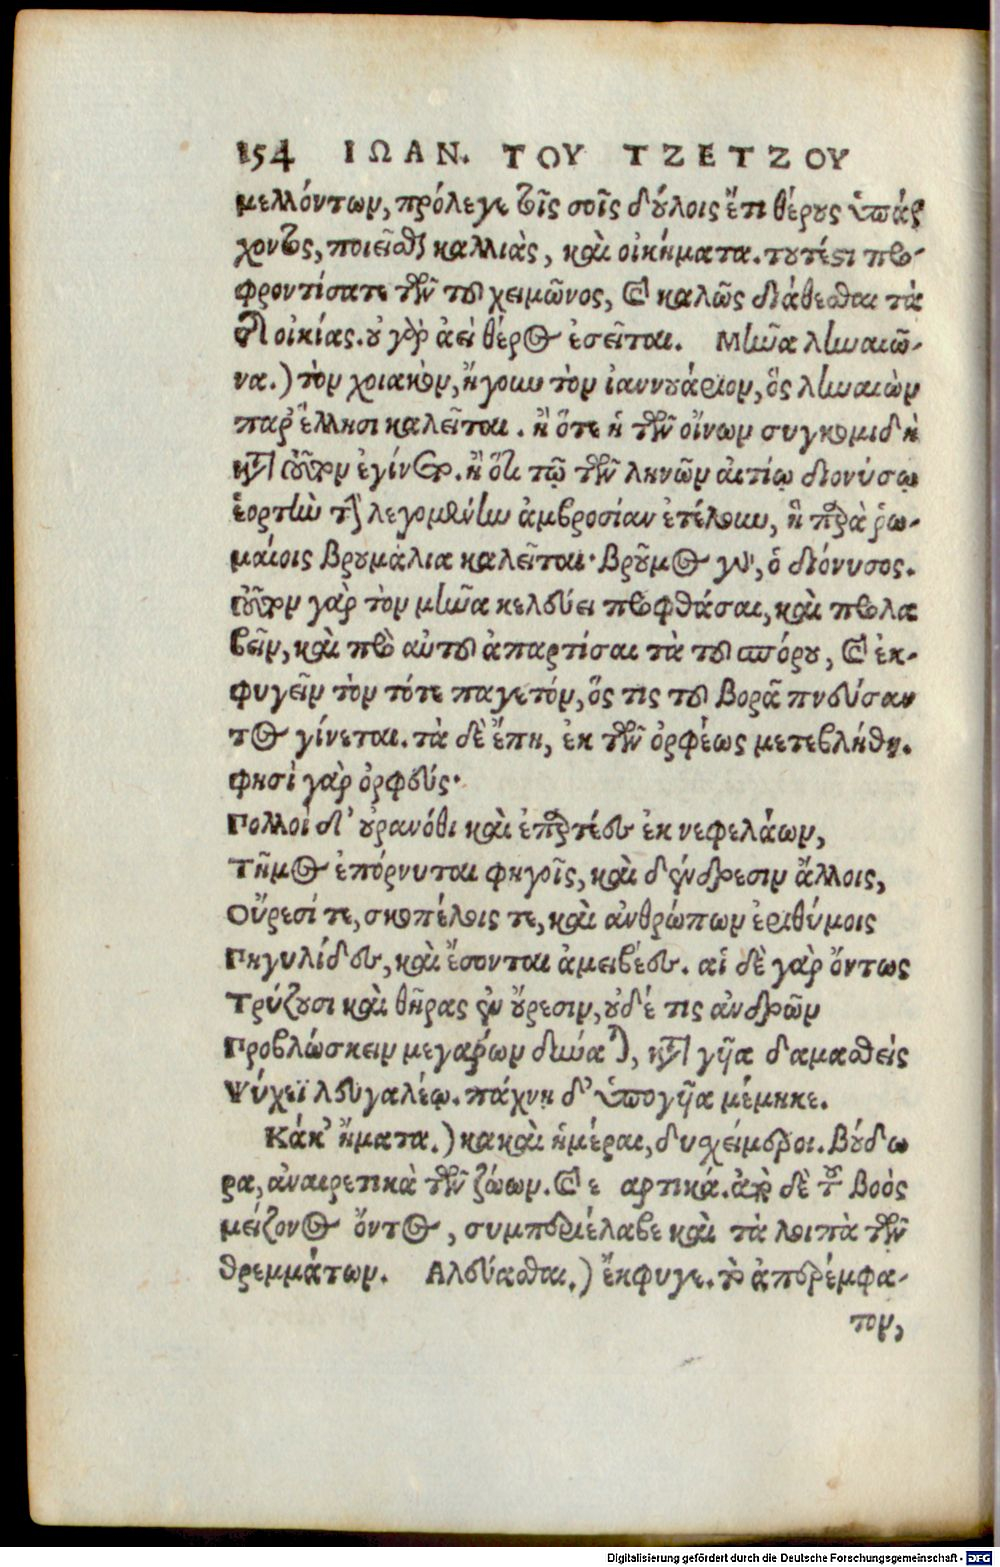 154 ΙΩΑΝ. ΤΟΥ ΤΖΕΤΖΟΥ
μελλόντων, πρόλεγε τοῖς σοῖς δούλοις ἔτι θέρους ὑπάρ
χοντος, ποιεῖσθε καλλιὰς, καὶ οἰκήματα. τουτέστι προ-
φροντίσατε τῶν τοῦ χειμῶνος, καὶ καλῶς διάθεσθαι τὰ
τῆς οἰκίας. οὐ γὰρ ἀεὶ θέρος ἐσεῖται. Μῆνα ληναιῶ-
να.) τὸν χοιακὸν, ἤγουν τὸν ἰαννουάριον, ὃς ληναιὼν
παρ' ἕλλησι καλεῖται. ἢ ὅτε ἡ τῶν οἴνων συγκομιδὴ
κατὰ τοῦτον ἐγίνετο. ἢ ὅτι τῷ τῶν ληνῶν αἰτίῳ διονύσῳ
ἑορτὴν τὴν λεγομένην ἀμβροσίαν ἐτέλουν, ἣ παρὰ ῥω-
μαίοις βρουμάλια καλεῖται· βροῦμος γὰρ, ὁ διόνυσος.
τοῦτον γὰρ τὸν μῆνα κελεύει προφθάσαι, καὶ προλα
βεῖν, καὶ πρὸ αὐτοῦ ἀπαρτίσαι τὰ τοῦ σπόρου, καὶ ἐκ-
φυγεῖν τὸν τότε παγετόν, ὅς τις τοῦ βορᾶ πνεύσαν
τος γίνεται. τὰ δὲ ἔπη, ἐκ τῶν ὀρφέως μετεβλήθη.
φησὶ γὰρ ὀρφεύς·
Πολλοὶ δ' οὐρανόθι καὶ ἐπαρτέες ἐκ νεφελάων,
Τῆμος ἐπόρνυται φηγοῖς, καὶ δένδρεσιν ἄλλοις,
Οὔρεσί τε, σκοπέλοις τε, καὶ ἀνθρώπων ἐριθύμοις
Πηγυλίδες, καὶ ἔσονται ἀμειβέες. αἱ δὲ γὰρ ὄντως
Τρύζουσι καὶ θῆρας ἐν οὔρεσιν, οὐδέ τις ἀνδρῶν
Προβλώσκειν μεγάρων δύναται, κατὰ γυῖα δαμασθεὶς
Ψύχεϊ λευγαλέῳ. πάχνη δ' ὑπογυῖα μέμηκε.
Κάκ' ἤματα.) κακαὶ ἡμέραι, δυσχείμεροι. βούδω
ρα, ἀναιρετικὰ τῶν ζώων. καὶ ε αρτικά. ἀπὸ δὲ τοῦ βοὸς
μείζονος ὄντος, συμπεριέλαβε καὶ τὰ λοιπὰ τῶν
θρεμμάτων. Αλεύασθαι.) ἔκφυγε. τὸ ἀπαρέμφα-
τον,
Digitalisierung gefördert durch die Deutsche Forschungsgemeinschaft - DFG